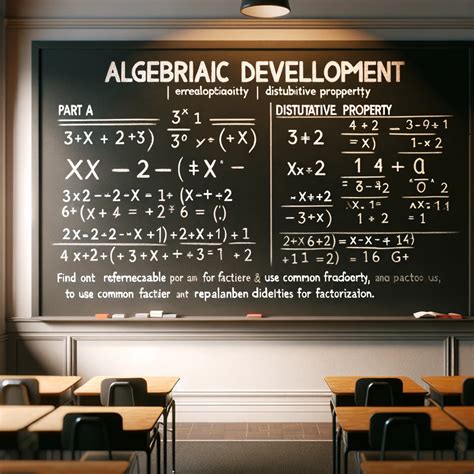 ALGEBRIAIC DEVELLOPMENT
| erealoptiacitty | distubiitive propprety
PART A
3+X + 2+3)
3ˣ 1
3⁰ y ÷(+X)
XX − 2 − (‡X −
3x2 − −2 −X = 1+(X−+÷2
6+(x + + 2 + 6 + (;)
2x = 2 − −2x − +1 + 2x + = 2
4 x2 + (+ 3 + X + + ÷3 = 1 + 2
DISTUTATIVE PROPERTY
3÷2
4 + 2
= X)
3−9÷1
1−x2
Xx÷2
1 4 + a
−x+÷2
−3+x)
1 ÷ 2
2+x6+2) =(x−x÷ 14)
+11 = 2) = 16 G+
Find ont refermezable por am for factiere & use common fradoerty, ana pactoo us,
to use common factier ant repalanben dideities for factorizaton.